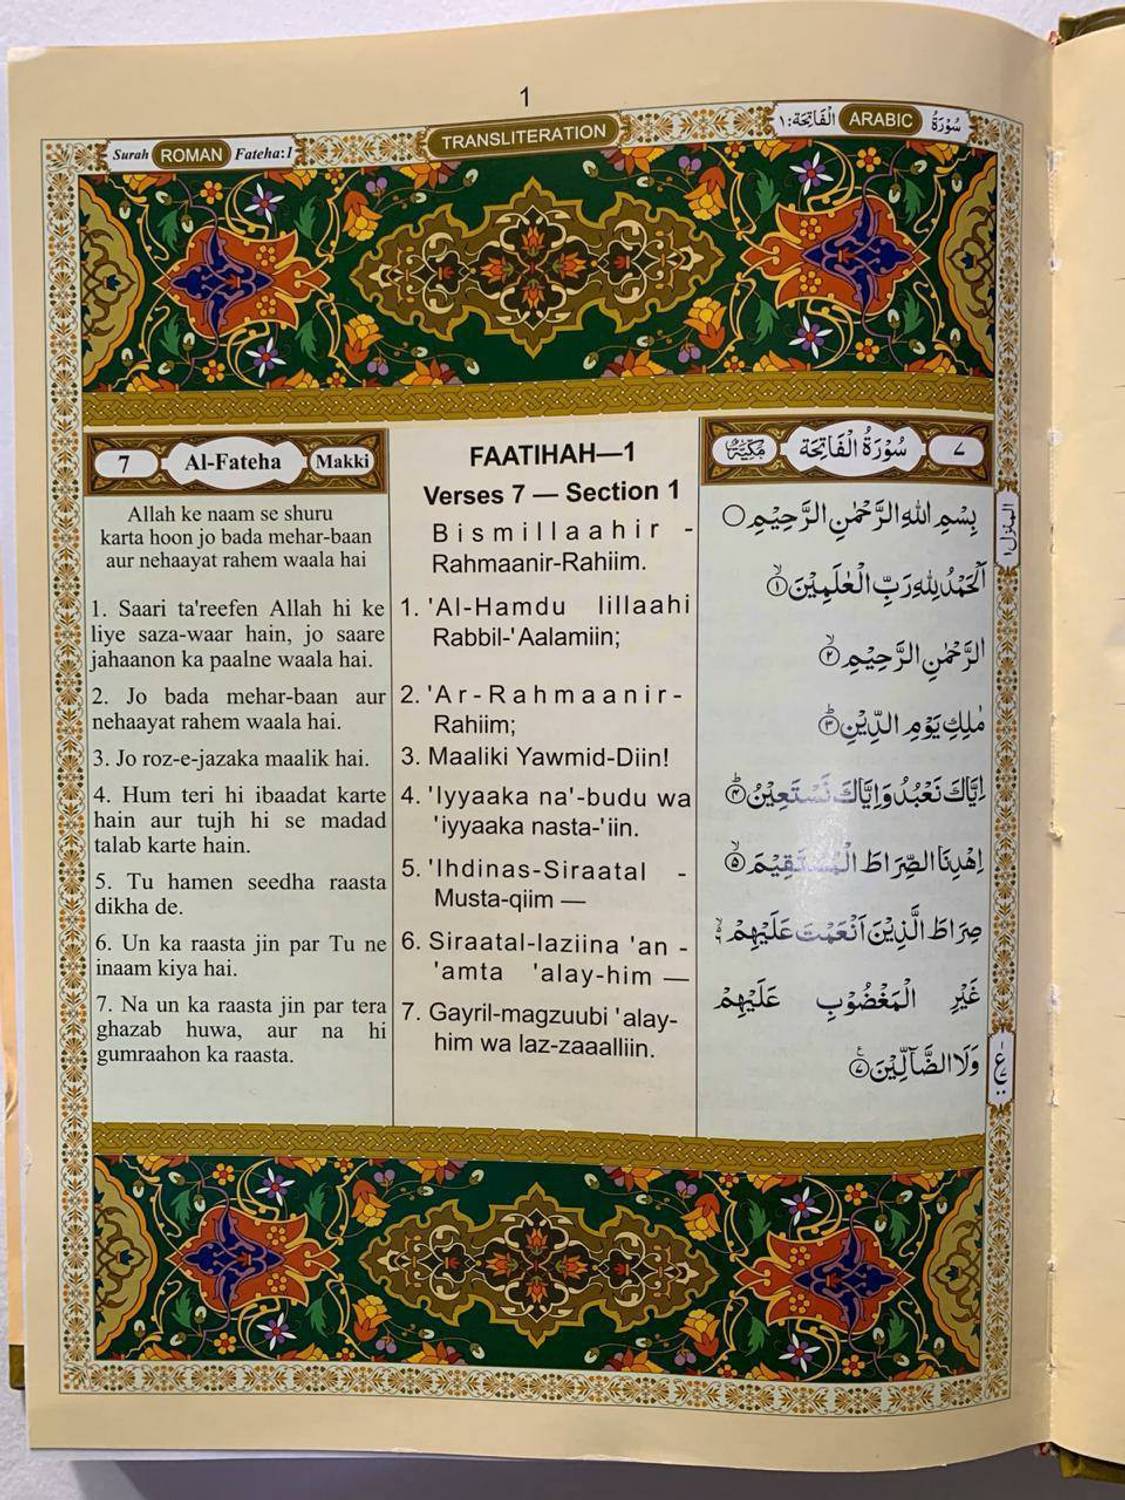 1
Surah ROMAN Fateha:1
TRANSLITERATION
سُوْرَةُ ARABIC الْفَاتِحَة:١
7 Al-Fateha Makki
Allah ke naam se shuru
karta hoon jo bada mehar-baan
aur nehaayat rahem waala hai
1. Saari ta'reefen Allah hi ke
liye saza-waar hain, jo saare
jahaanon ka paalne waala hai.
2. Jo bada mehar-baan aur
nehaayat rahem waala hai.
3. Jo roz-e-jazaka maalik hai.
4. Hum teri hi ibaadat karte
hain aur tujh hi se madad
talab karte hain.
5. Tu hamen seedha raasta
dikha de.
6. Un ka raasta jin par Tu ne
inaam kiya hai.
7. Na un ka raasta jin par tera
ghazab huwa, aur na hi
gumraahon ka raasta.
FAATIHAH—1
Verses 7 — Section 1
Bismillaahir -
Rahmaanir-Rahiim.
1. 'Al-Hamdu lillaahi
Rabbil-'Aalamiin;
2. 'Ar-Rahmaanir-
Rahiim;
3. Maaliki Yawmid-Diin!
4. 'Iyyaaka na'-budu wa
'iyyaaka nasta-'iin.
5. 'Ihdinas-Siraatal -
Musta-qiim —
6. Siraatal-laziina 'an -
'amta 'alay-him —
7. Gayril-magzuubi 'alay-
him wa laz-zaaalliin.
٧ سُوْرَةُ الْفَاتِحَة مَكِّيَّة
بِسْمِ اللهِ الرَّحْمٰنِ الرَّحِيْمِ ۝
اَلْحَمْدُ لِلّٰهِ رَبِّ الْعٰلَمِيْنَ ۙ۝١
الرَّحْمٰنِ الرَّحِيْمِ ۙ۝٢
مٰلِكِ يَوْمِ الدِّيْنِ ؕ۝٣
اِيَّاكَ نَعْبُدُ وَاِيَّاكَ نَسْتَعِيْنُ ؕ۝٤
اِهْدِنَا الصِّرَاطَ الْمُسْتَقِيْمَ ۙ۝٥
صِرَاطَ الَّذِيْنَ اَنْعَمْتَ عَلَيْهِمْ ۙ۬
غَيْرِ الْمَغْضُوْبِ عَلَيْهِمْ
وَلَا الضَّآلِّيْنَ ۠۝٧
المنزل١
ع